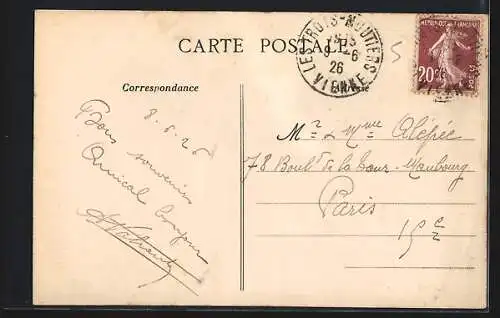 CARTE POSTALE
LES TROIS-MOUTIERS
8-6
26
VIENNE
REPUBLIQUE FRANÇAISE
20c
5
Correspondance
8.6.26
Bons souvenirs
Amical bonjour
Mr & Mme
78 Boult de la Tour-Maubourg
Paris
15e